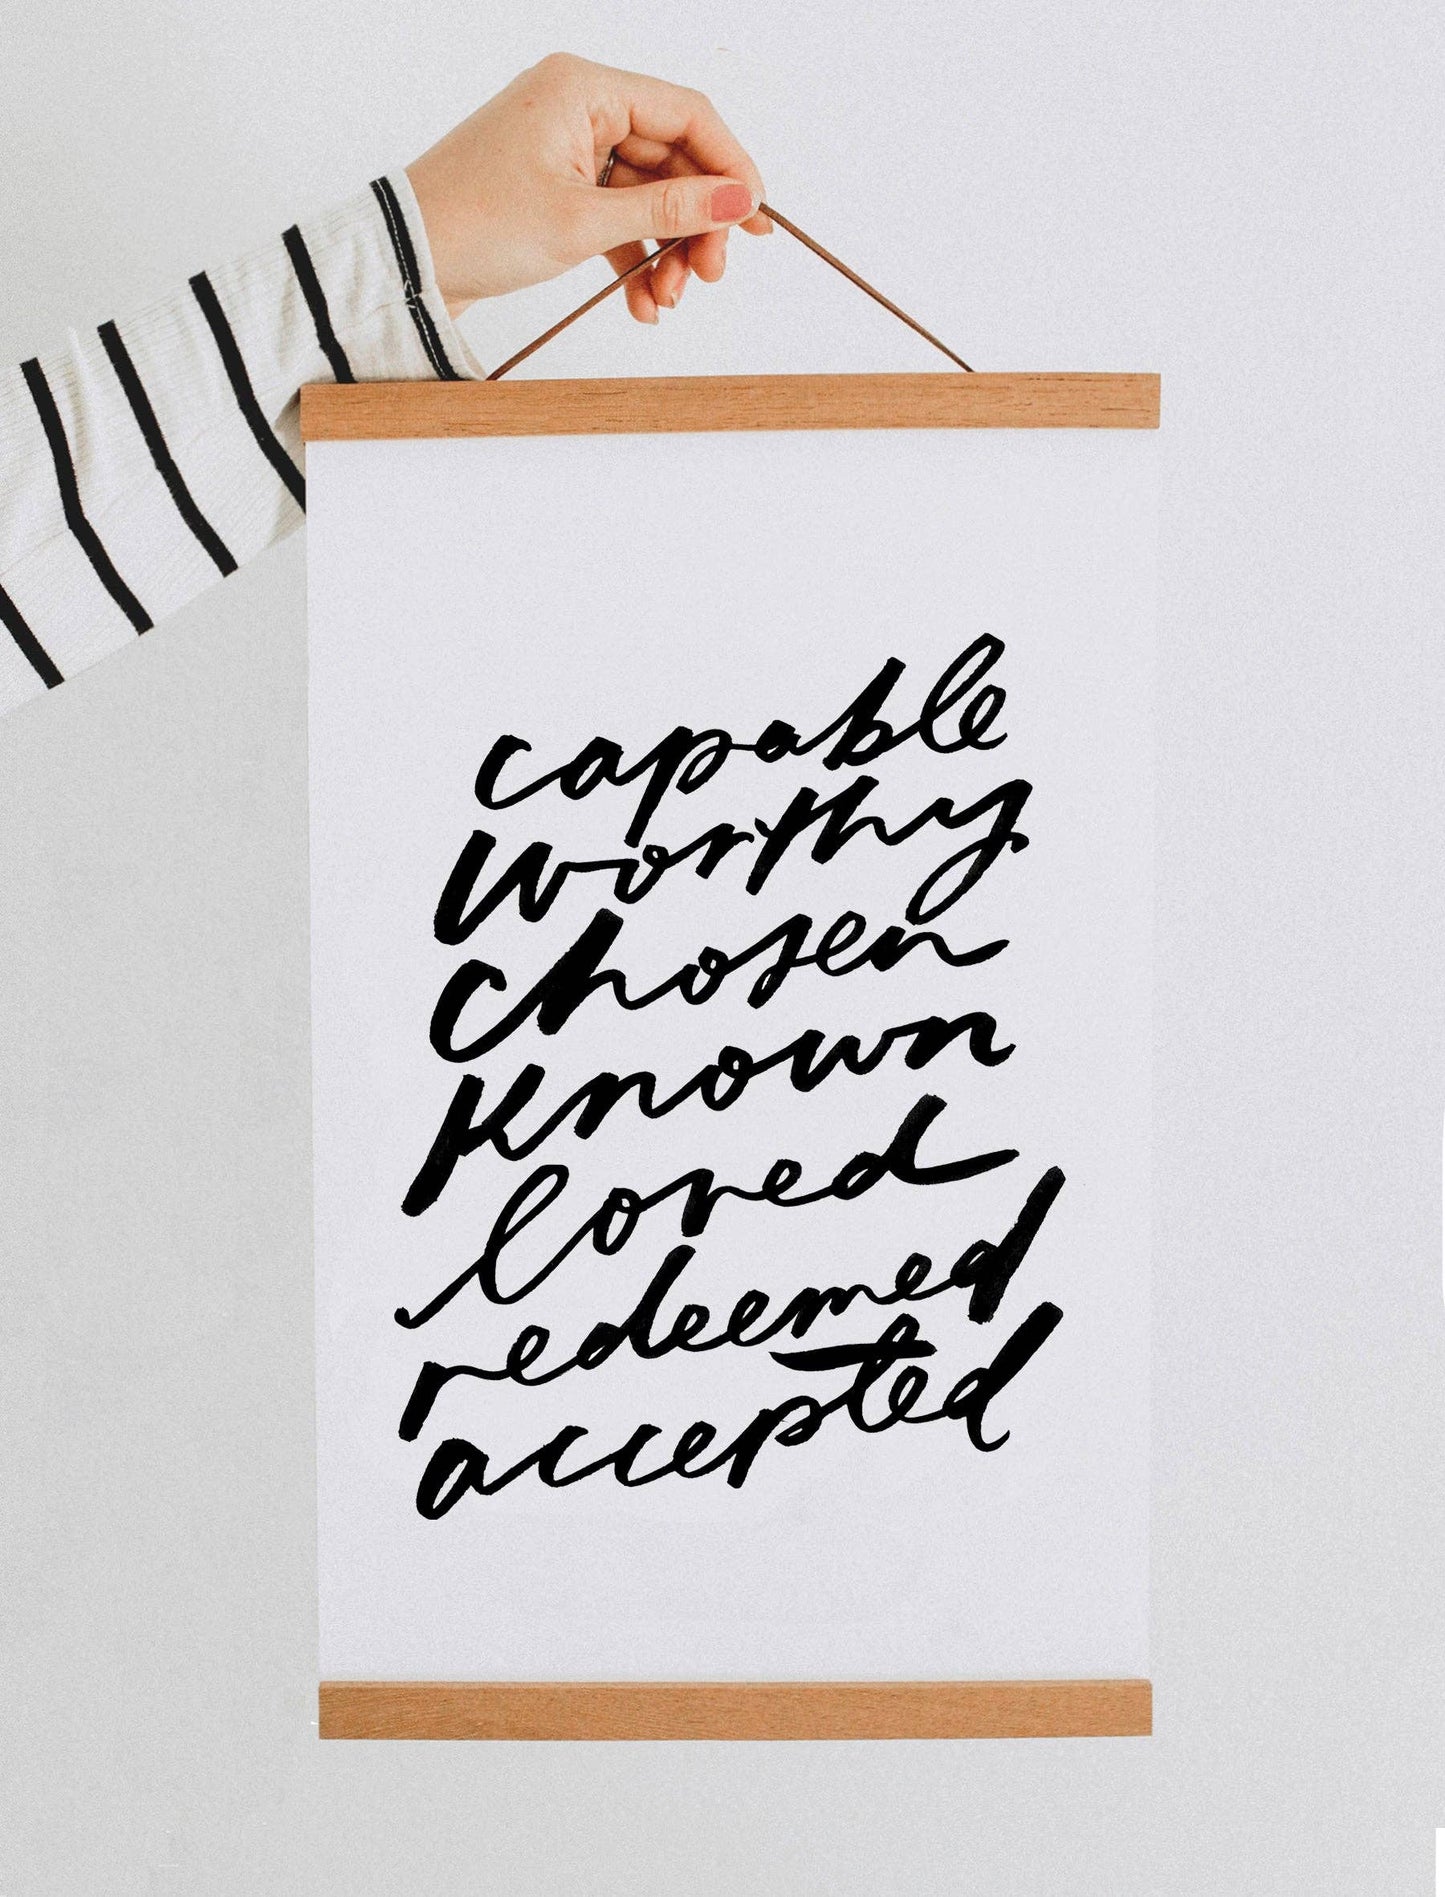 capable
worthy
chosen
known
loved
redeemed
accepted